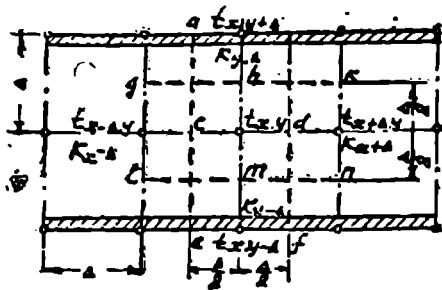 a t x,y+Δ
K y-Δ
g b k
Δ
t x-Δ,y c t x,y d t x+Δ,y
K x-Δ K x+Δ
m n
K y-Δ
e t x,y-Δ f
Δ Δ/2 Δ/2